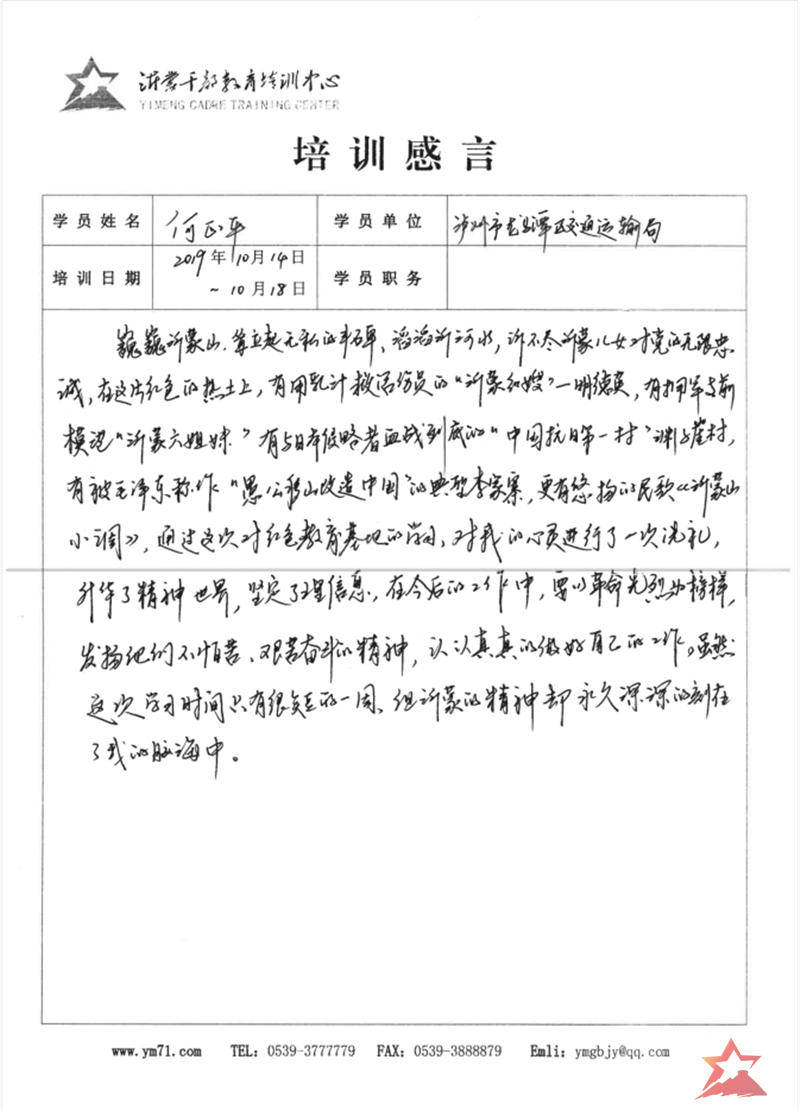 沂蒙干部教育培训中心
YIMENG CADRE TRAINING CENTER
培训感言
学员姓名 何正平 学员单位 泸州市龙马潭区交通运输局
培训日期 2019年10月14日 ~10月18日 学员职务
巍巍沂蒙山，耸立起无私的丰碑，滔滔沂河水，诉不尽沂蒙儿女对党的无限忠
诚，在这片红色的热土上，有用乳汁救活伤员的“沂蒙红嫂”一明德英，有拥军支前
模范“沂蒙六姐妹”有与日本侵略者血战到底的“中国抗日第一村”渊子崖村，
有被毛泽东称作“愚公移山改造中国”的典型李家寨，更有悠扬的民歌《沂蒙山
小调》，通过这次对红色教育基地的学习，对我的心灵进行了一次洗礼，
升华了精神世界，坚定了理信息，在今后的工作中，要以革命先烈为榜样，
发扬他们不怕苦、艰苦奋斗的精神，认认真真的做好自己的工作。虽然
这次学习时间只有很短的一周、但沂蒙的精神却永久深深的刻在
了我的脑海中。
www.ym71.com TEL：0539-3777779 FAX：0539-3888879 Emli：ymgbjy@qq.com